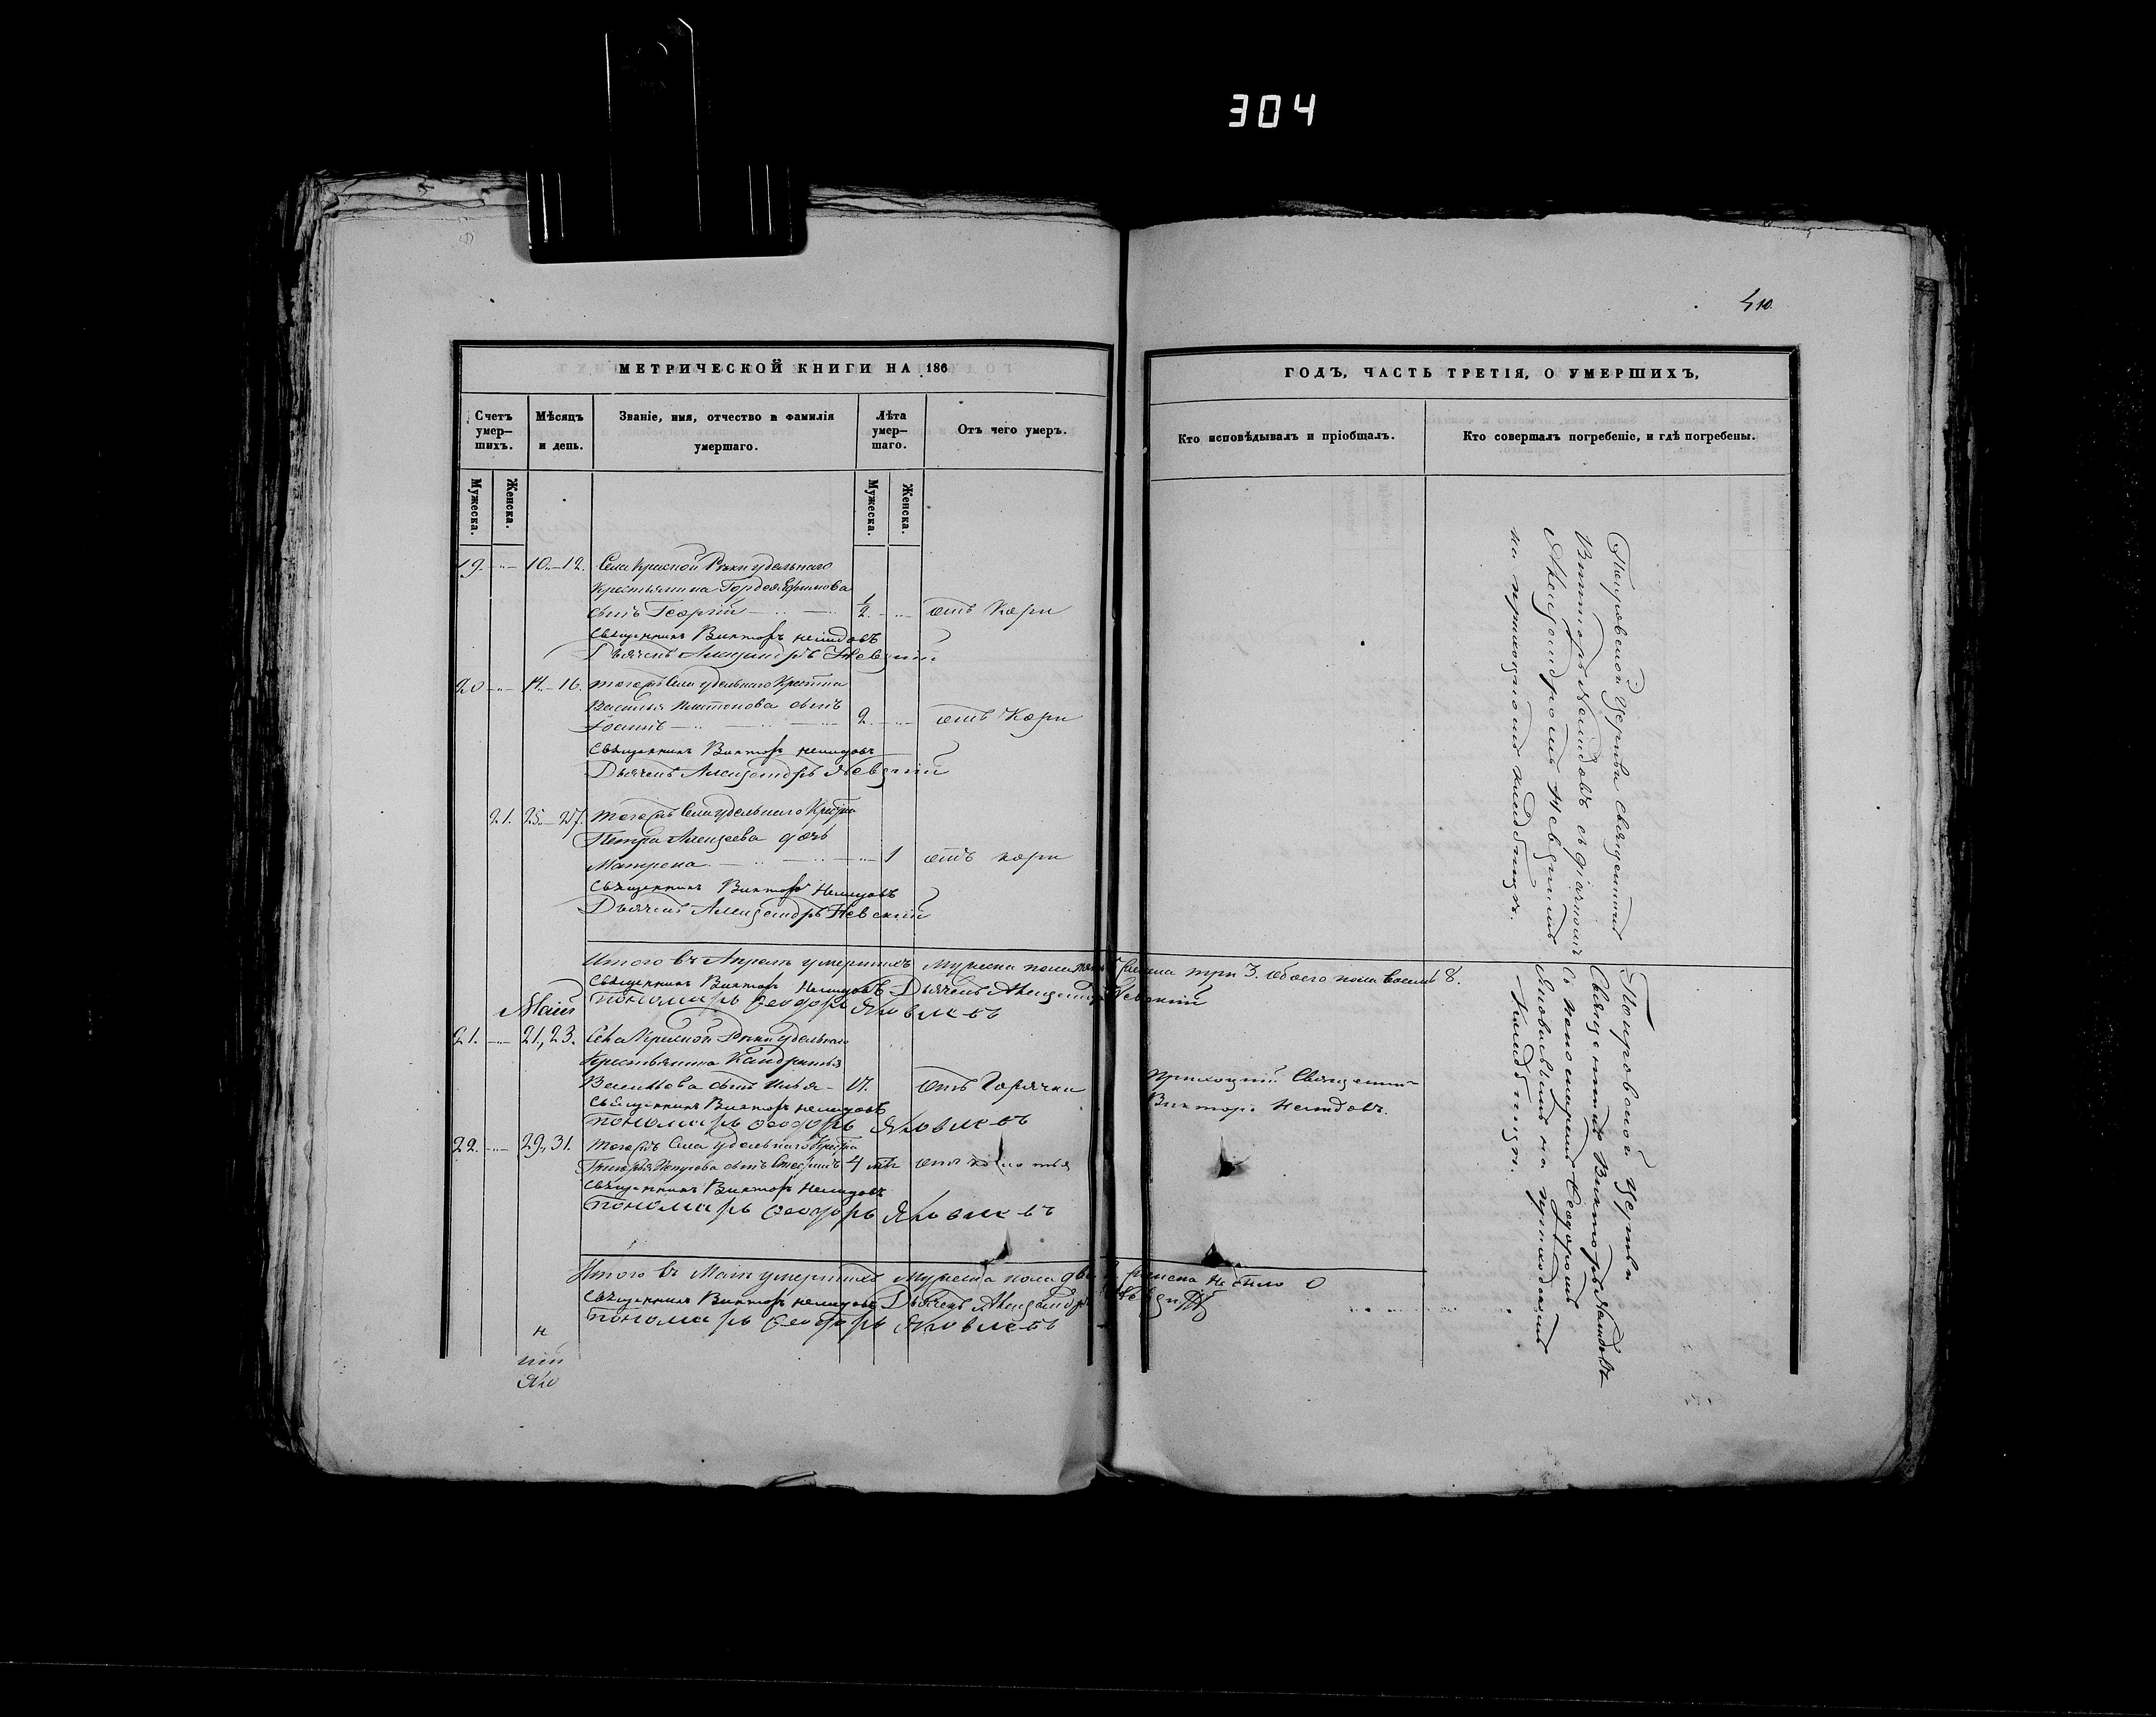 304
410.
МЕТРИЧЕСКОЙ КНИГИ НА 186
ГОДЪ, ЧАСТЬ ТРЕТІЯ, О УМЕРШИХЪ,
Счетъ умер—шихъ.
Мѣсяцъ и день.
Званіе, имя, отчество и фамилія умершаго.
Лѣта умер—шаго.
Отъ чего умеръ.
Кто исповѣдывалъ и пріобщалъ.
Кто совершалъ погребеніе, и гдѣ погребены.
Мужеска.
Женска.
Мужеска.
Женска.
19. 10.—12. Села Красной Рѣки удельнаго
крестьянина Гордея Ефимова
сынъ Георгій 1/2 отъ Кори
Священникъ Викторъ Немидовъ
Дьячекъ Александръ Невскій
20 14.—16. тогожъ Села удельнаго
Василья Платонова сынъ
Іоаннъ 2. отъ Кори
Священникъ Викторъ Немидовъ
Дьячекъ Александръ Невскій
21. 25.—27. тогожъ Села удельнаго
Петра Алексеева дочь
Матрена 1 отъ кори
Священникъ Викторъ Немидовъ
Дьячекъ Александръ Невскій
Итого въ Апрелѣ умершихъ мужеска пола три 3. обоего пола восемь 8.
Священникъ Викторъ Немидовъ Дьячекъ Александръ Невскій
Пономарь Ѳеодоръ Яковлевъ
Маій
21. 21, 23. Села Красной Рѣки удельнаго
Крестьянина
Васильева сынъ Илья 17. отъ Горячки
Приходскій Священникъ
Викторъ Немидовъ.
Священникъ Викторъ Немидовъ
Пономарь Ѳеодоръ Яковлевъ
22. 29, 31. тогожъ Села удельнаго
Григорья сынъ 4
Священникъ Викторъ Немидовъ
Пономарь Ѳеодоръ Яковлевъ
Итого въ Маіѣ умершихъ мужеска пола два женска не было 0
Священникъ Викторъ Немидовъ Дьячекъ Александръ Невскій
Пономарь Ѳеодоръ Яковлевъ
н
кій
Яко
Покровской Церкви Священникъ
Викторъ Немидовъ съ дьячкомъ
Александромъ Невскимъ
на приходскомъ кладбищѣ.
Покровской Церкви
Священникъ Викторъ Немидовъ
съ пономаремъ Ѳеодоромъ
Яковлевымъ на приходскомъ
Кладбищѣ.